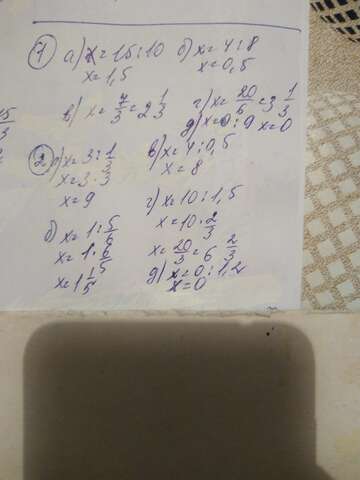 1 а) x=15:10 б) x=4:8
x=1,5 x=0,5
в) x=7/3=2 1/3 г) x=20/6=3 1/3
д) x=0:9 x=0
2 а) x=3:1/3 в) x=4:0,5
x=3·3 x=8
x=9 г) x=10:1,5
x=10·2/3
б) x=1:5/6 x=20/3=6 2/3
x=1·6/5 д) x=0:1,2
x=1 1/5 x=0